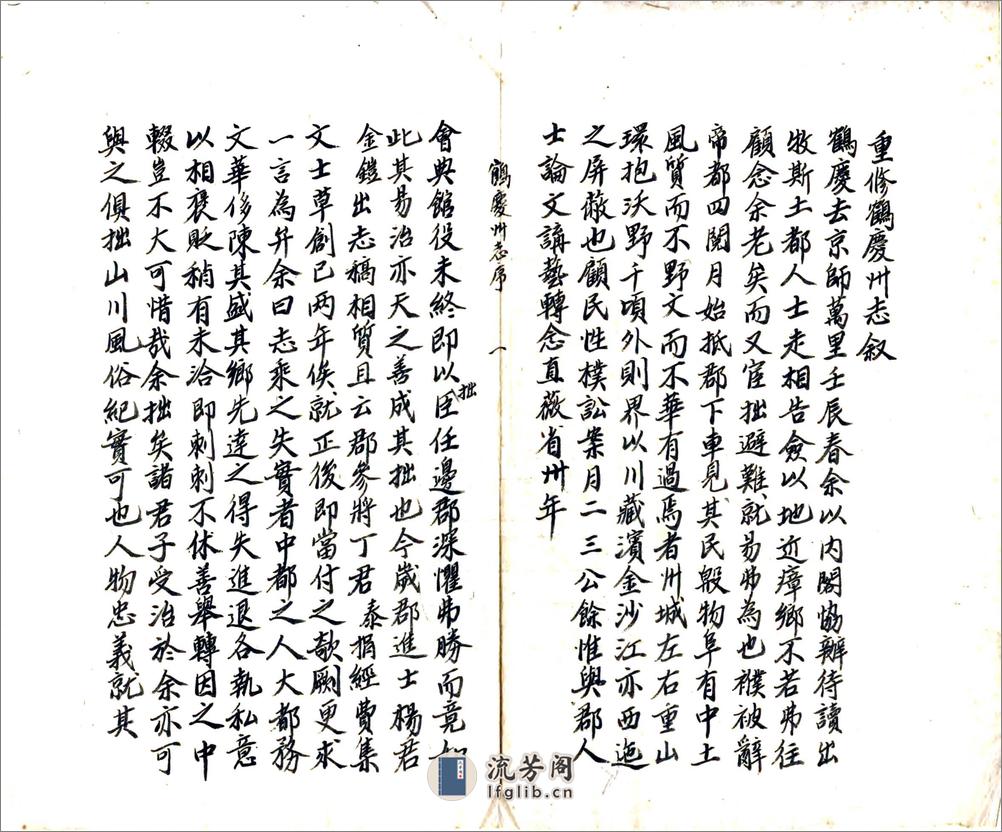 重修鶴慶州志叙
鶴慶去京師萬里壬辰春余以内閣協辦待讀出
牧斯土都人士走相告僉以地近瘴鄉不若弗往
顧念余老矣而又宦拙避難就易弗為也襆被辭
帝都四閱月始抵郡下車見其民殷物阜有中土
風質而不野文而不華有過焉者州城左右重山
環抱沃野千頃外則界以川藏濱金沙江亦西迤
之屏蔽也顧民性樸訟案月二三公餘惟與郡人
士論文講藝轉念直薇省卅年
鶴慶州志序 一
會典館役未終即以拙臣任邊郡深懼弗勝而竟如
此其易治亦天之善成其拙也今歲郡進士楊君
金鎧出志稿相質且云郡參將丁君 泰捐經費集
文士草創已两年俟就正後即當付之欹劂更求
一言為弁余曰志乘之失實者中都之人大都務
文華侈陳其盛其鄉先達之得失進退各執私意
以相褒貶稍有未洽即刺刺不休善舉轉因之中
輟豈不大可惜哉余拙矣諸君子受治於余亦可
與之俱拙山川風俗紀實可也人物忠義就其
流芳阁
lfglib.cn